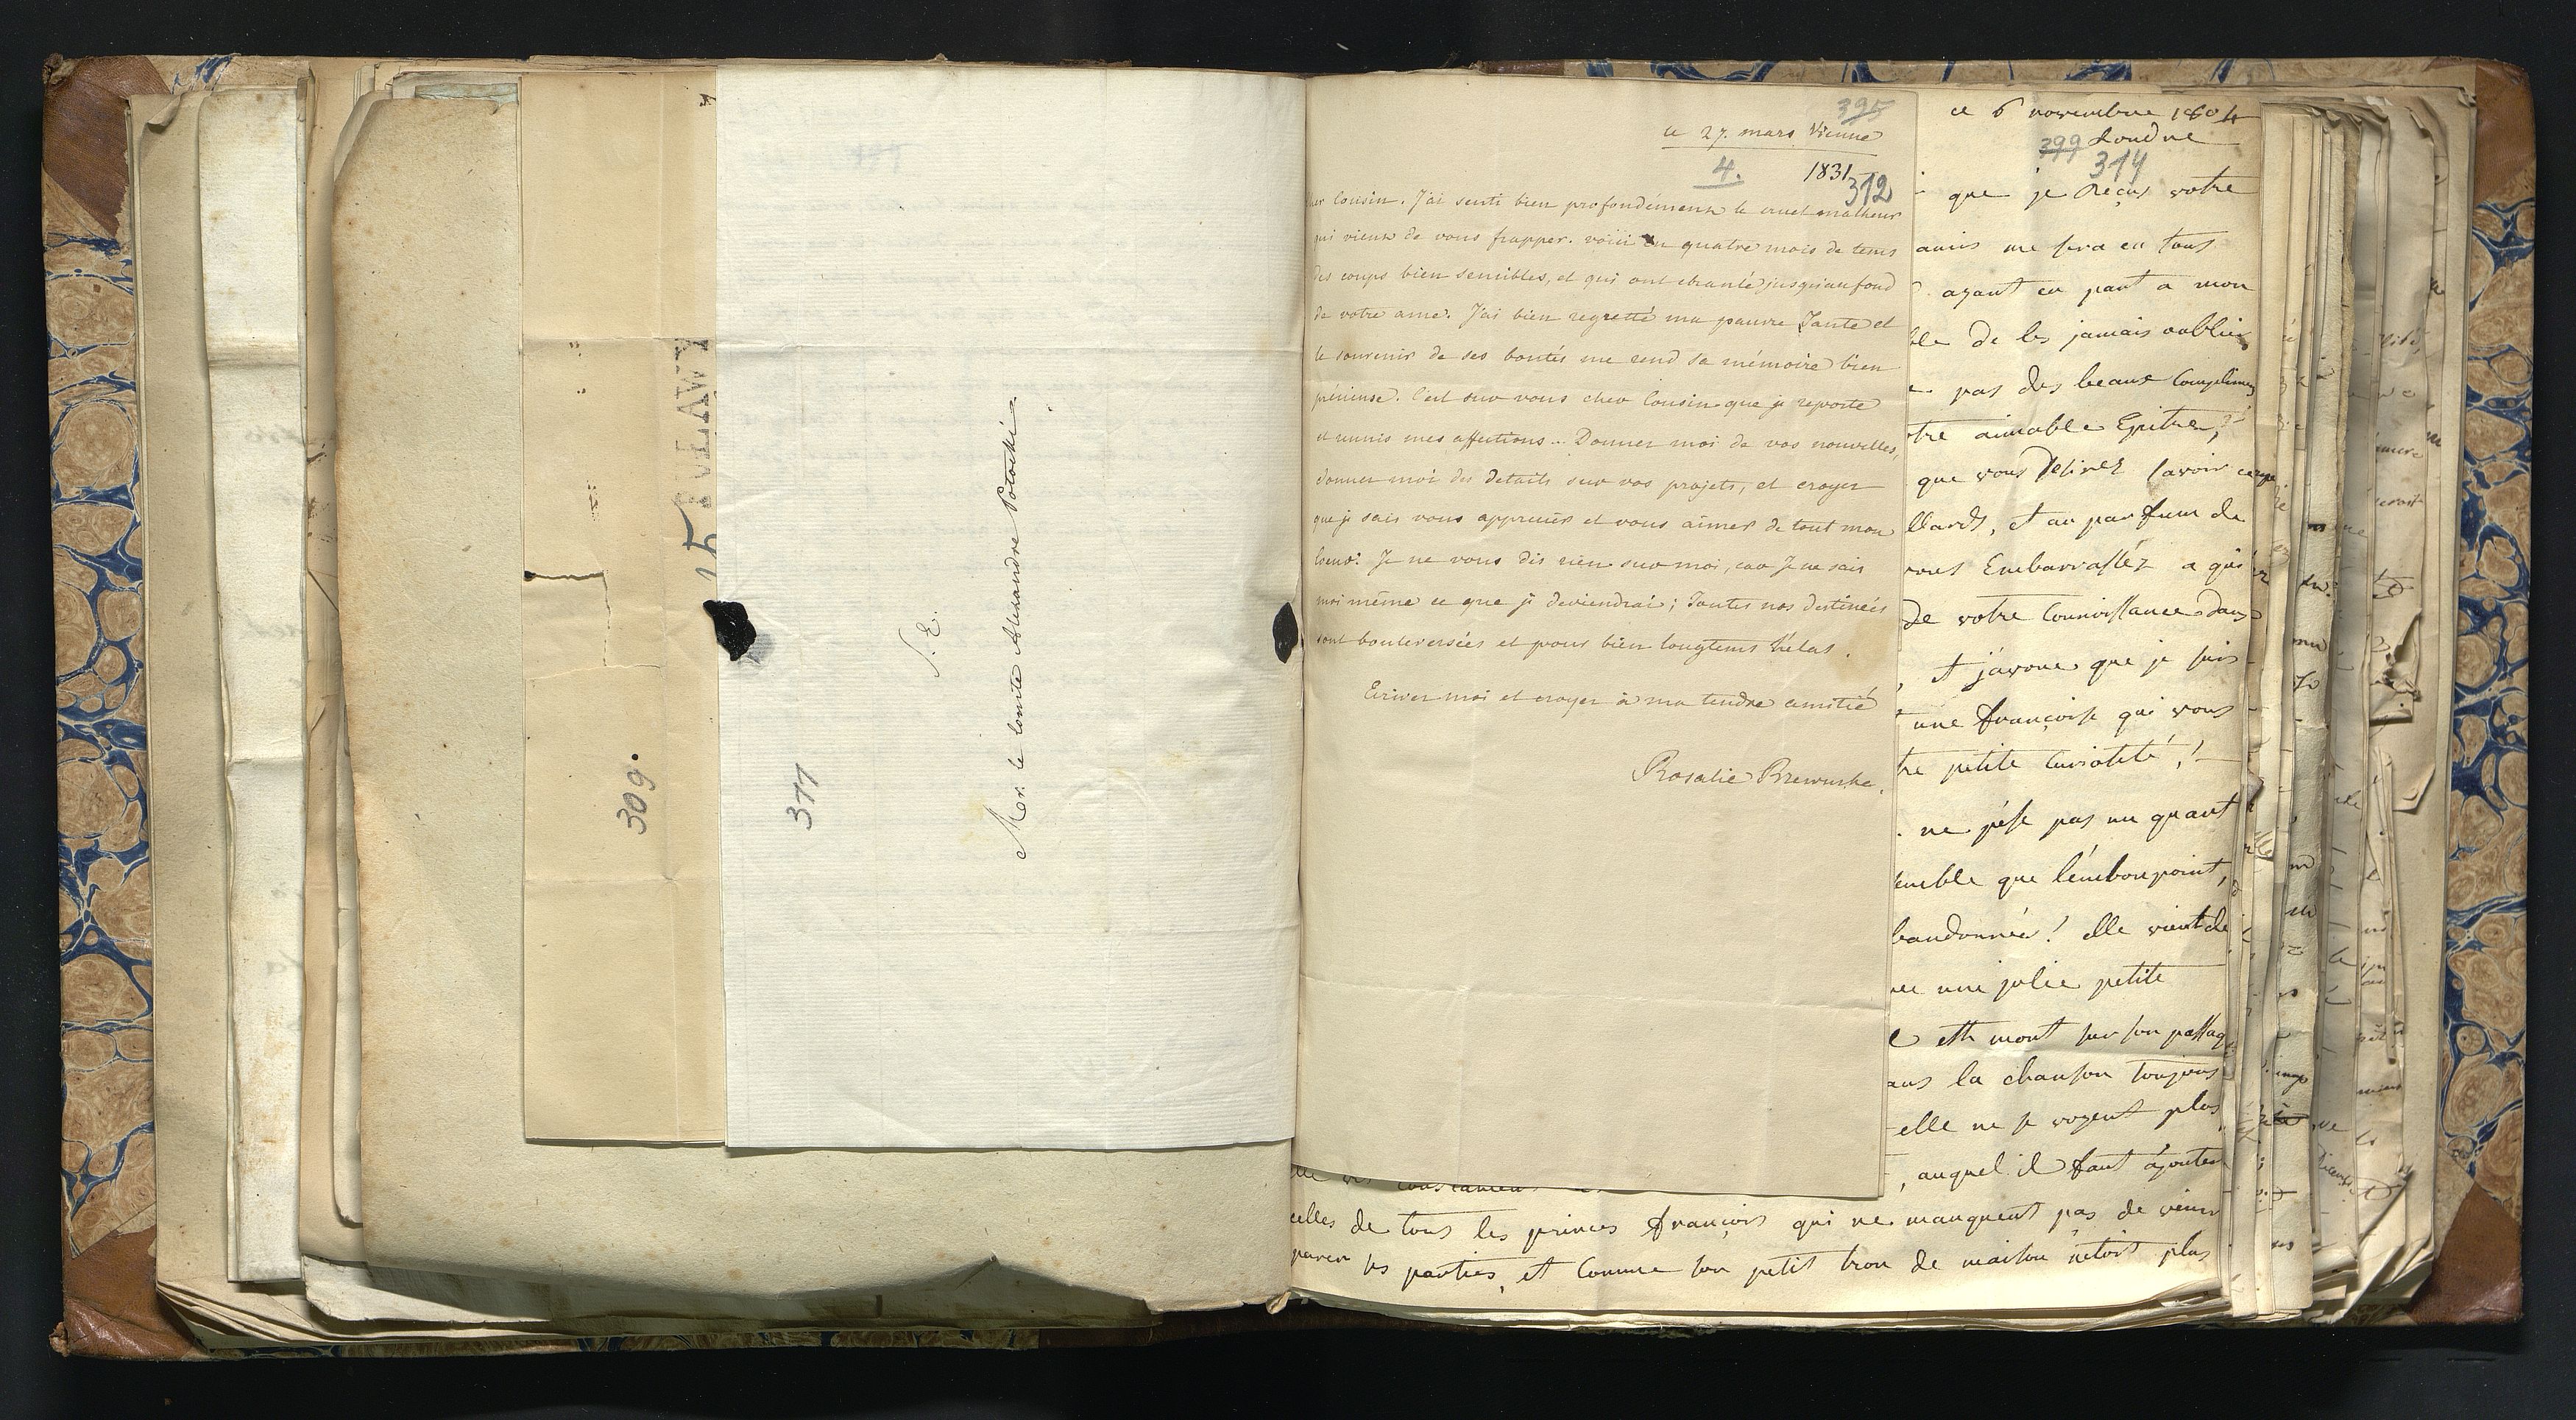 PUŁAWY
15
309.
311
S. E.
Mr. le Comte Alexandre Potocki
395
ce 27. mars Vienne
4. 1831
312
Cher Cousin. J'ai senti bien profondément le cruel malheur
qui vient de vous frapper. voici en quatre mois de tems
des coups bien sensibles, et qui ont ebranlé jusqu'au fond
de votre ame. J'ai bien regretté ma pauvre Tante et
le souvenir de ses bontés me rend sa mémoire bien
précieuse. C'est sur vous cher Cousin que je reporte
et reunis mes affections.. Donner moi de vos nouvelles,
donner moi des details sur vos projets, et croyer
que je sais vous apprecier et vous aimer de tout mon
Coeur. Je ne vous dis rien sur moi, car Je ne sais
moi même ce que je deviendrai; Toutes nos destinées
sont bouleversées et pour bien longtems hélas.
Ecriver moi et croyer à ma tendre amitié
Rosalie Rzewuska.
ce 6 novembre 1804
399 Londre
314
que je reçus votre
amis me sera en tous
ayant eu part a mon
ble de les jamais oublier
pas des beaux Complimens
tre aimable Epitre,
que vous desirez savoir
llards, et au parfum de
vous Embarrassez a qui
de votre Connoissance dans
, et j'avoue que je suis
une françoise qui vous
tre petite Curiosité!
ne pése pas un quart
semble que l'émbonpoint,
bandonnée! elle vient de
une jolie petite
e eth mont sur son passag
ans la chanson toujours
elle ne se voyent plus
, auquel il faut ajouter
celles de tous les princes françois qui ne manquent pas de venir
parer ses parties, et Comme son petit trou de maison n'etoit plus